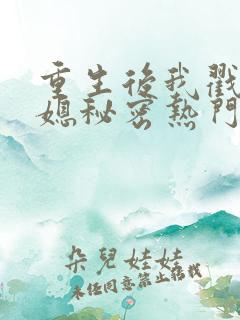 重生後我戳
媳秘密熱門
朵兒娃娃
未經同意禁止轉載